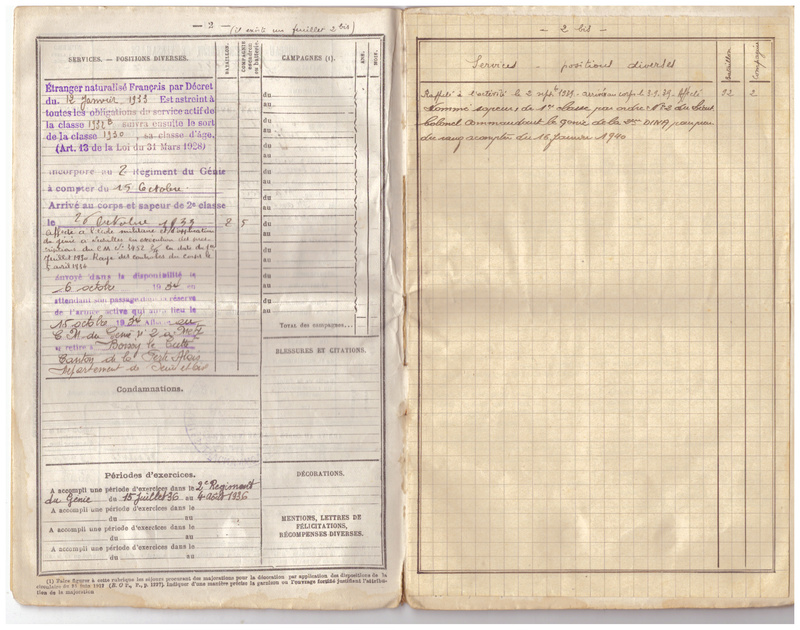 — 2 —
(il existe un feuillet 2 bis)
SERVICES. — POSITIONS DIVERSES.
BATAILLON.
COMPAGNIE
escadron
ou batterie.
CAMPAGNES (1).
ANS.
MOIS.
Étranger naturalisé Français par Décret
du 12 Janvier 1933 Est astreint à
toutes les obligations du service actif de
la classe suivra ensuite le sort
de la classe 1930, sa classe d'âge.
(Art. 13 de la Loi du 31 Mars 1928)
Incorporé au 2 Régiment du Génie
à compter du 15 Octobre.
Arrivé au corps et sapeur de 2e classe
le 20 Octobre 1933 2 5
affecté à l'école militaire et d'application
du génie à Versailles en exécution des pres
criptions du C.M. n° la date du 1er
Rayé des contrôles du corps le
5 avril 1934
envoyé dans la disponibilité le
16 octobre 1934 en
attendant son passage dans la réserve
de l'armée active qui aura lieu le
15 octobre 1934 au
C.M. du Génie n° 2 à Metz
se retire à
Canton de la
département de
du
au
du
au
du
au
du
au
du
au
du
au
du
au
du
au
du
au
TOTAL des campagnes...
BLESSURES ET CITATIONS.
Condamnations.
Périodes d'exercices.
A accompli une période d'exercices dans le 2e Régiment
du Génie du 15 Juillet 36 au 4 août 1936
A accompli une période d'exercices dans le
du au
A accompli une période d'exercices dans le
du au
A accompli une période d'exercices dans le
du au
DÉCORATIONS.
MENTIONS, LETTRES DE
FÉLICITATIONS,
RÉCOMPENSES DIVERSES.
(1) Faire figurer à cette rubrique les séjours procurant des majorations pour la décoration par application des dispositions de la
circulaire du (B. O P., P., p. 1937). Indiquer d'une manière précise la garnison ou l'ouvrage fortifié justifiant l'attribu-
tion de la majoration
— 2 bis —
Services — positions diverses
Bataillon
Compagnie
Rappelé à l'activité le 2 septbre 1939. arrivé au corps le 3.9.39. Affecté 92 2
Nommé sapeur de 1ère classe par ordre N° 2 du Lieut
Colonel Commandant le Génie de la DINA pour
du rang à compter du 16 Janvier 1940